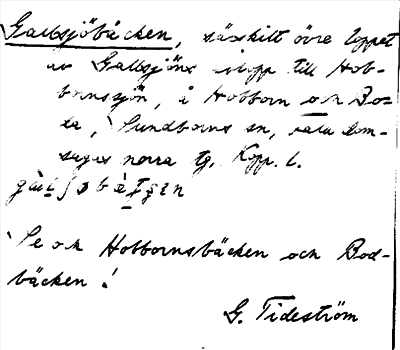 Galbsjöbäcken, särskilt övre loppet
av Galbsjöns utlopp till Hob-
bornssjön, å Hobborn och Bo-
da, Sundborns sn, Falu dom-
sagas norra tg, Kopp. l.
Se o.k Hobbornsbäcken och Bod-
bäcken!
G. Tideström